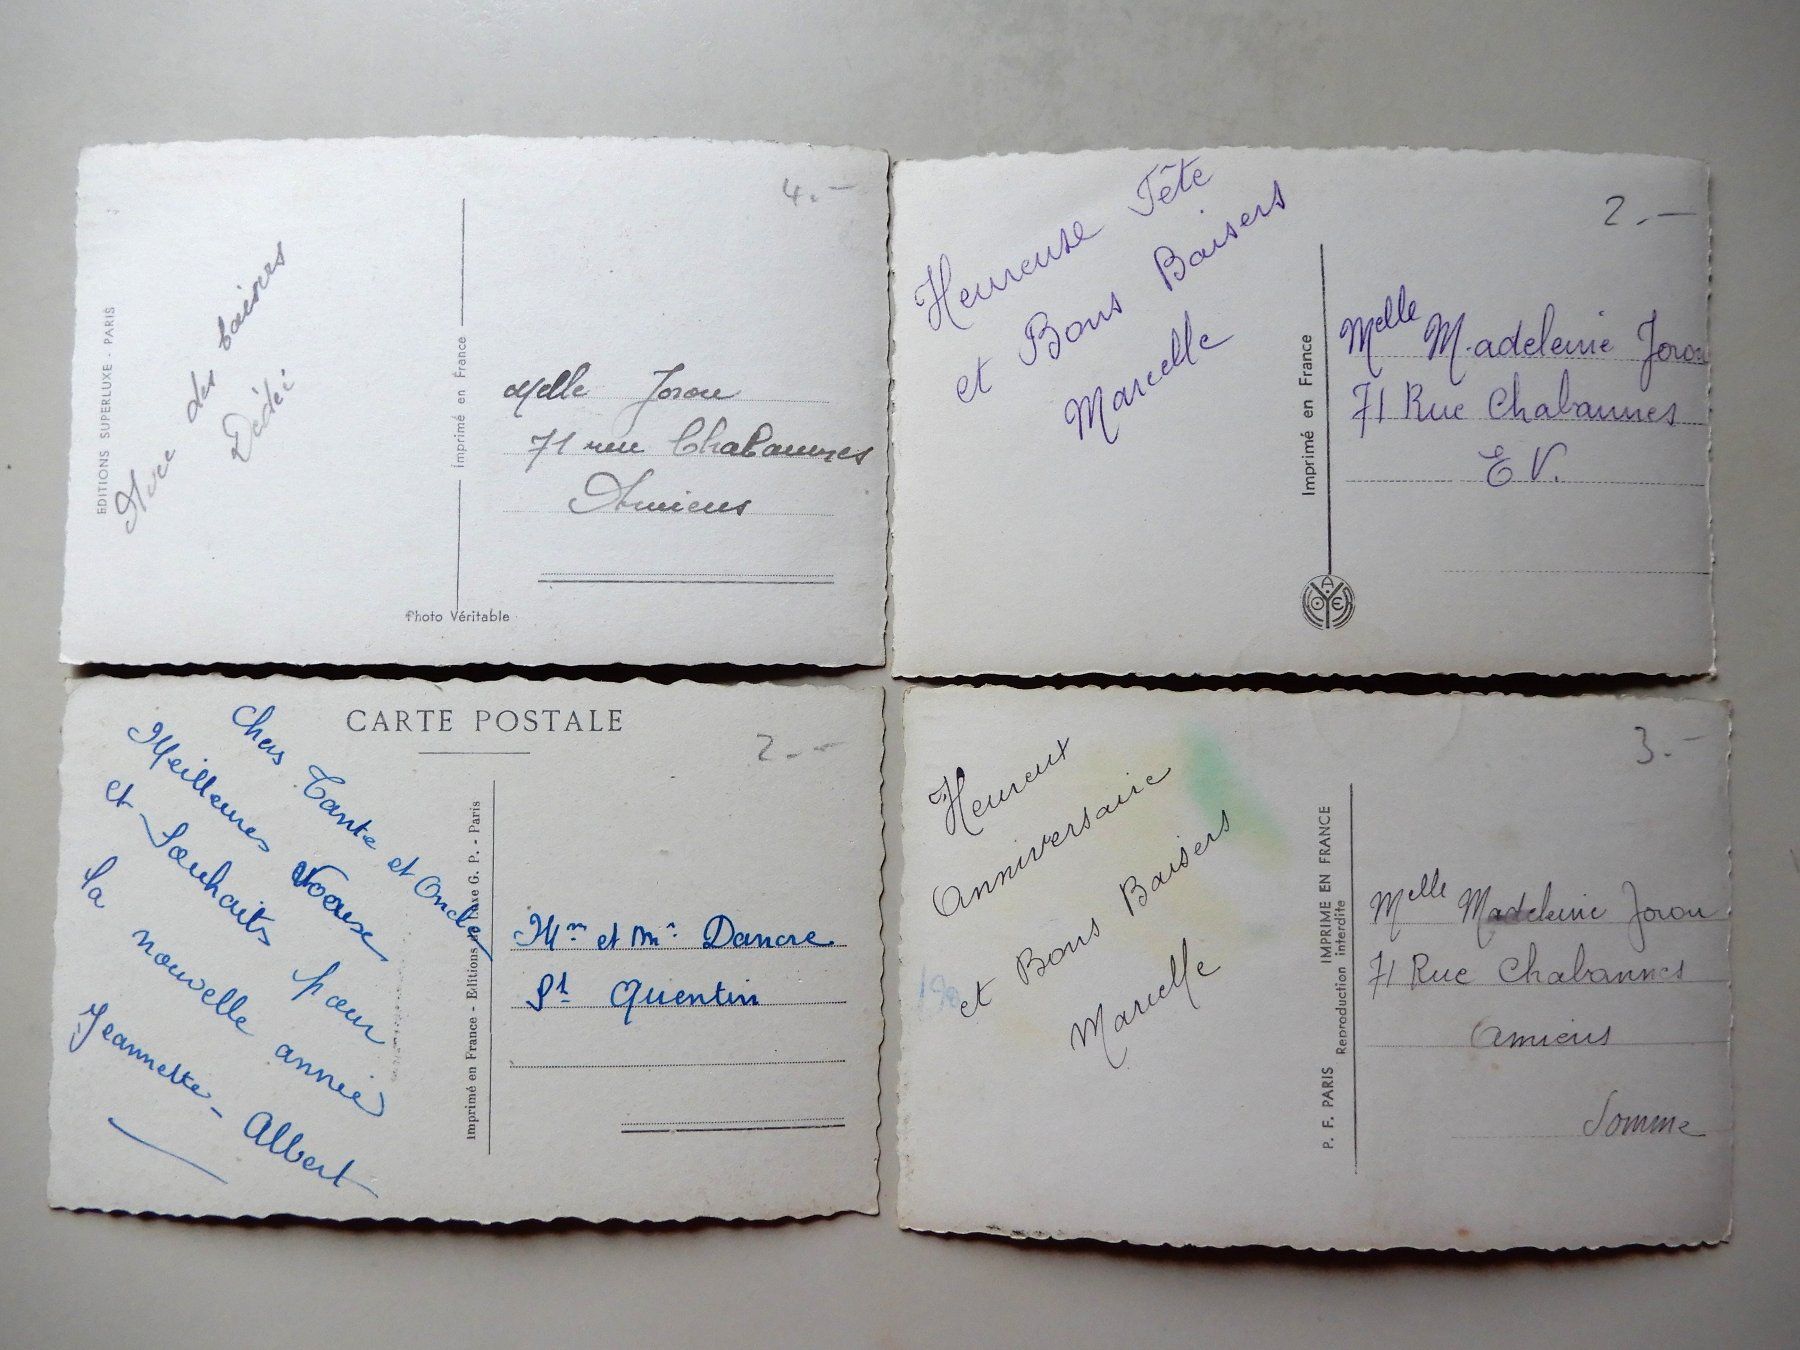 4.-
EDITIONS SUPERLUXE - PARIS
Avec des baisers
Dédée
Imprimé en France
Melle Jorou
71 rue Chabannes
Amiens
Photo Véritable
2.-
Heureuse Fête
et Bons Baisers
Marcelle
Imprimé en France
Melle Madeleine Jorou
71 Rue Chabannes
E V.
CARTE POSTALE
2.-
Chers Tante et Oncle
Meilleures Voeux
et Souhaits pour
la nouvelle année
Jeannette - Albert
Imprimé en France - Editions de Luxe G. P. - Paris
Mr et Me Dancre
St Quentin
3.-
Heureux
Anniversaire
et Bons Baisers
Marcelle
P. F. PARIS IMPRIME EN FRANCE
Reproduction interdite
Melle Madeleine Jorou
71 Rue Chabannes
Amiens
Somme